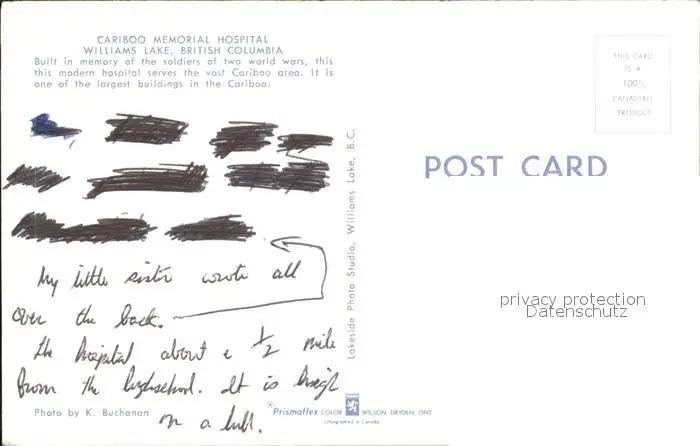 CARIBOO MEMORIAL HOSPITAL
WILLIAMS LAKE, BRITISH COLUMBIA
Built in memory of the soldiers of two world wars, this
this modern hospital serves the vast Cariboo area. It is
one of the largest buildings in the Cariboo.
THIS CARD
IS A
100%
CANADIAN
PRODUCT
POST CARD
Lakeside Photo Studio, Williams Lake, B.C.
My little sister wrote all
over the back.
the hospital about a 1/2 mile
from the highschool. It is
on a hill.
Photo by K. Buchanan
Prismaflex COLOR WILSON, DRYDEN, ONT
Lithographed in Canada
privacy protection
Datenschutz